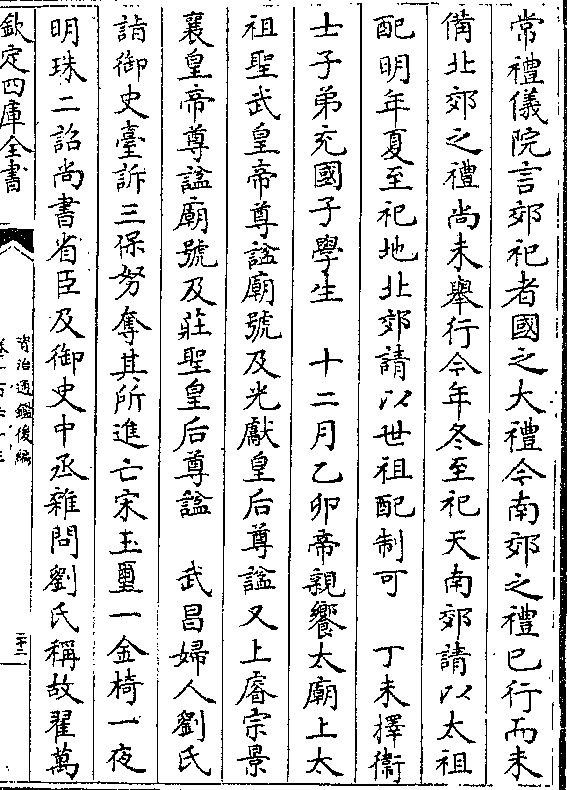 常禮儀院言郊祀者國之大禮今南郊之禮已行而未
備北郊之禮尚未舉行今年冬至祀天南郊請以太祖
配明年夏至祀地北郊請以世祖配制可　丁未擇衛
士子弟充國子學生　十二月乙卯帝親饗太廟上太
祖聖武皇帝尊諡廟號及光獻皇后尊諡又上睿宗景
襄皇帝尊諡廟號及莊聖皇后尊諡　武昌婦人劉氏
詣御史臺訴三保努奪其所進亡宋玉璽一金椅一夜
明珠二詔尚書省臣及御史中丞雜問劉氏稱故翟萬
欽定四庫全書
資治通鑑後編
卷一百六十三
二十二